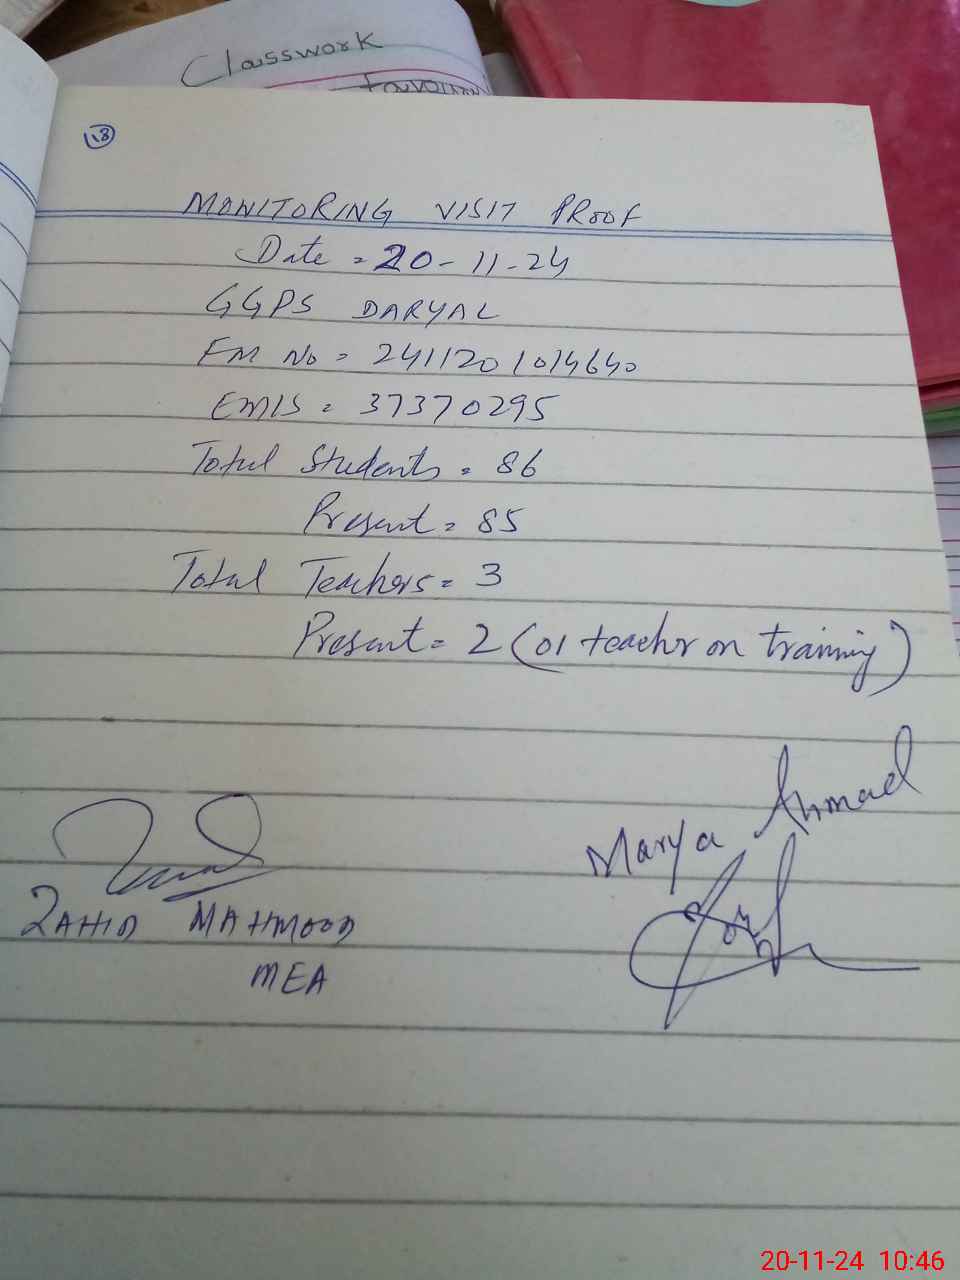 Classwork
18
MONITORING VISIT PROOF
Date = 20-11-24
GGPS DARYAL
FM No = 2411201014640
EMIS = 37370295
Total Students = 86
Present = 85
Total Teachers = 3
Present = 2 (01 teacher on training)
Marya Ahmad
ZAHID MAHMOOD
MEA
20-11-24 10:46